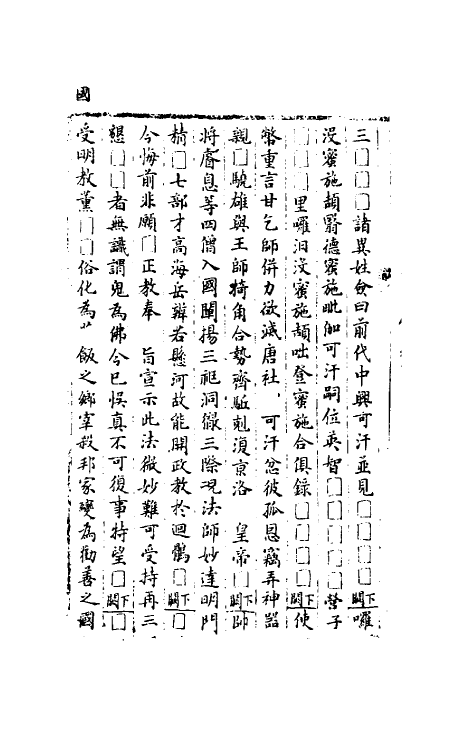 國
三□□□諸異姓僉曰前代中興可汗並見□□□□下闕囉
没蜜施頡翳德蜜施毗伽可汗嗣位英智□□□□營子
□□□里囉汨没蜜施頡咄登蜜施合俱録□□□□下闕使
幣重言甘乞師併力欲滅唐社 可汗忿彼孤恩竊弄神器
親□驍雄與王師犄角合勢齊駈剋復京洛 皇帝□下闕師
將睿息等四僧入國闡揚三祀洞徹三際況法師妙達明門
精□七部才高海岳辯若懸河故能開政教於迴鶻□下闕□
今悔前非願□正教奉 旨宣示此法微妙難可受持再三
懇□□者無識謂鬼為佛今已悮真不可復事特望□下闕□
受明教薰□□俗化為 飯之鄉宰殺邦家變為勸善之國